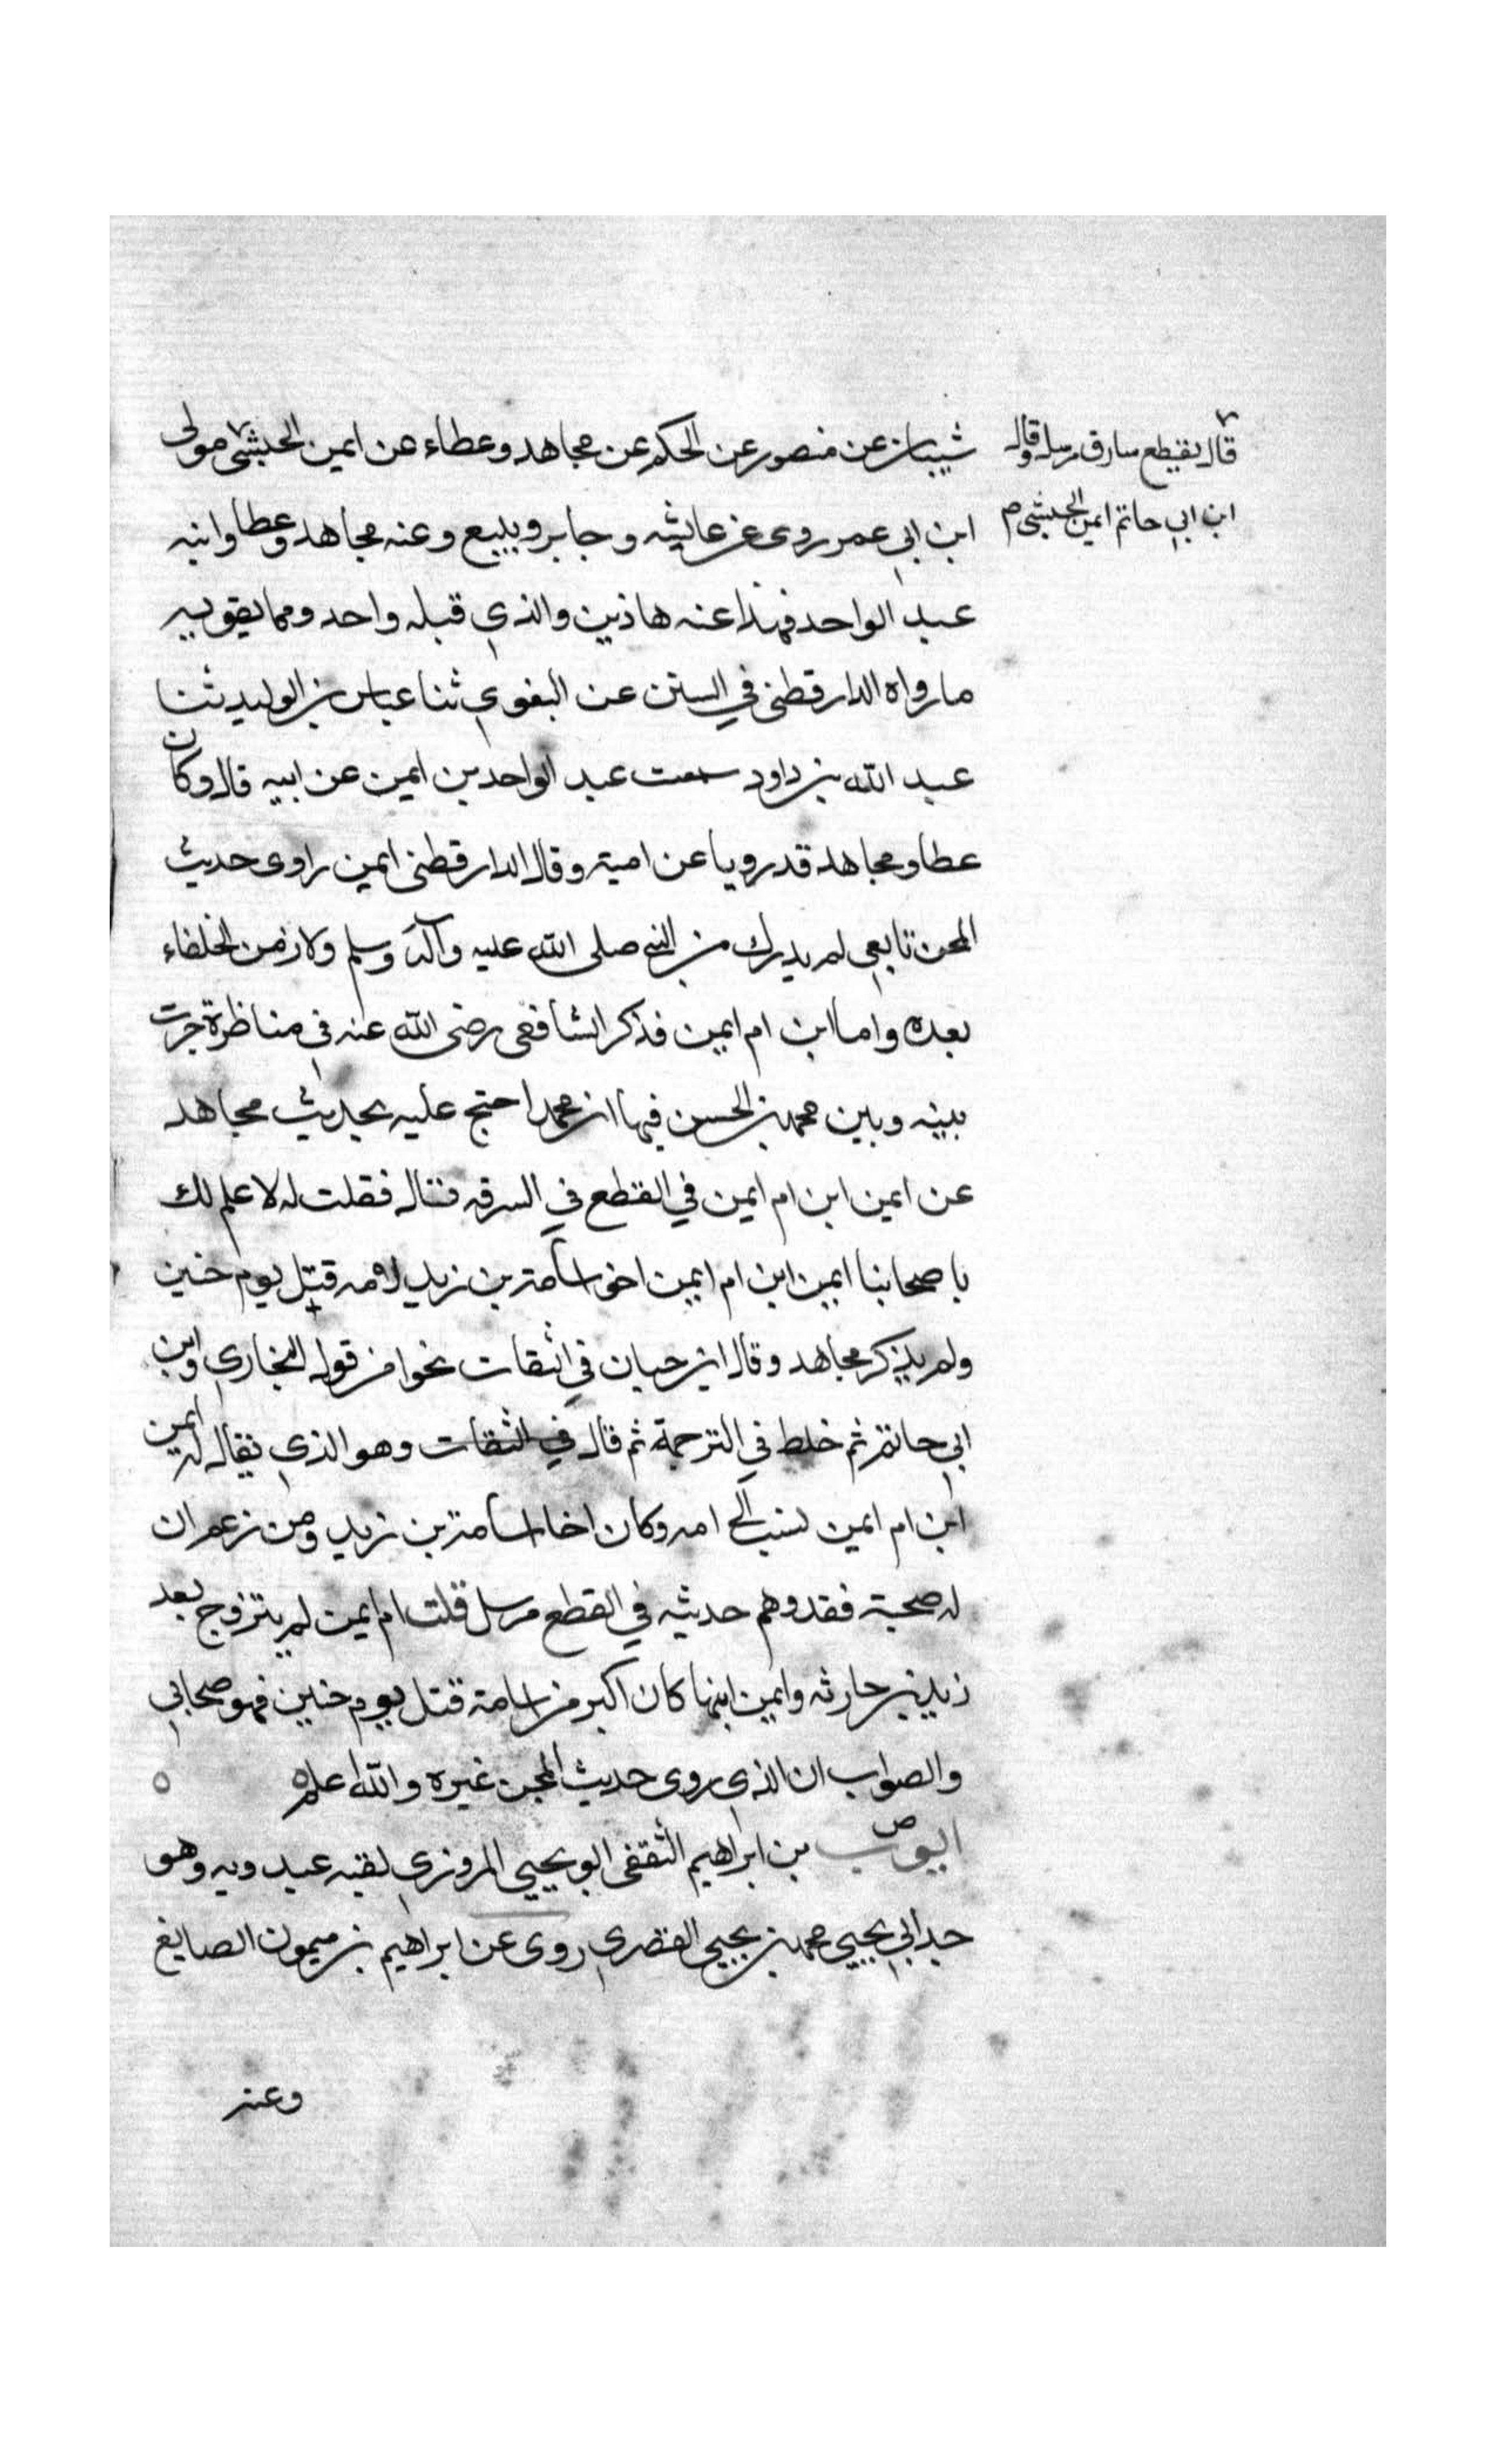 شيبان عن منصور عن الحكم عن مجاهد وعطاء عن ايمن الحبشى مولى
ابن ابي عمر روى عن عايشه وجابر وتبيع وعنه مجاهد وعطا وابنه
عبد الواحد فهذا عنه هاذين والذي قبله واحد ومما يقويه
ما رواه الدارقطني في السنن عن البغوي ثنا عباس بن الوليد ثنا
عبد الله بن داود سمعت عبد الواحد بن ايمن عن ابيه قال وكان
عطا ومجاهد قد رويا عن اميه وقال الدارقطنى ايمن راوى حديث
المجن تابعي لم يدرك من النبي صلى الله عليه وآله وسلم ولا زمن الخلفاء
بعده واما ابن ام ايمن فذكر الشافعى رضى الله عنه فى مناظرة جرت
بينه وبين محمد بن الحسن فيها ان محمدا احتج عليه بحديث مجاهد
عن ايمن ابن ام ايمن في القطع في السرقه قال فقلت له لا علم لك
باصحابنا ايمن ابن ام ايمن اخى اسامة بن زيد لامه قتل يوم حنين
ولم يذكر مجاهد وقال ابن حبان في الثقات نحوا من قول البخاري وابن
ابي حاتم ثم خلط في الترجمة ثم قال في الثقات وهو الذي يقال له ايمن
ابن ام ايمن نسب الى امه وكان اخا اسامة بن زيد ومن زعم ان
له صحبة فقد وهم حديثه في القطع مرسل قلت ام ايمن لم يتزوج بعد
زيد بن حارثه وايمن ابنها كان اكبر من اسامة قتل يوم حنين فهو صحابي
والصواب ان الذي روى حديث المجن غيره والله اعلم ه
ايوب ص بن ابراهيم الثقفى ابو يحيي المروزي لقبه عبدويه وهو
جد ابي يحيي محمد بن يحيى القصري روى عن ابراهيم بن ميمون الصايغ
وعنه
قال يقطع سارق مرسله وقال
ابن ابي حاتم ايمن الحبشي م